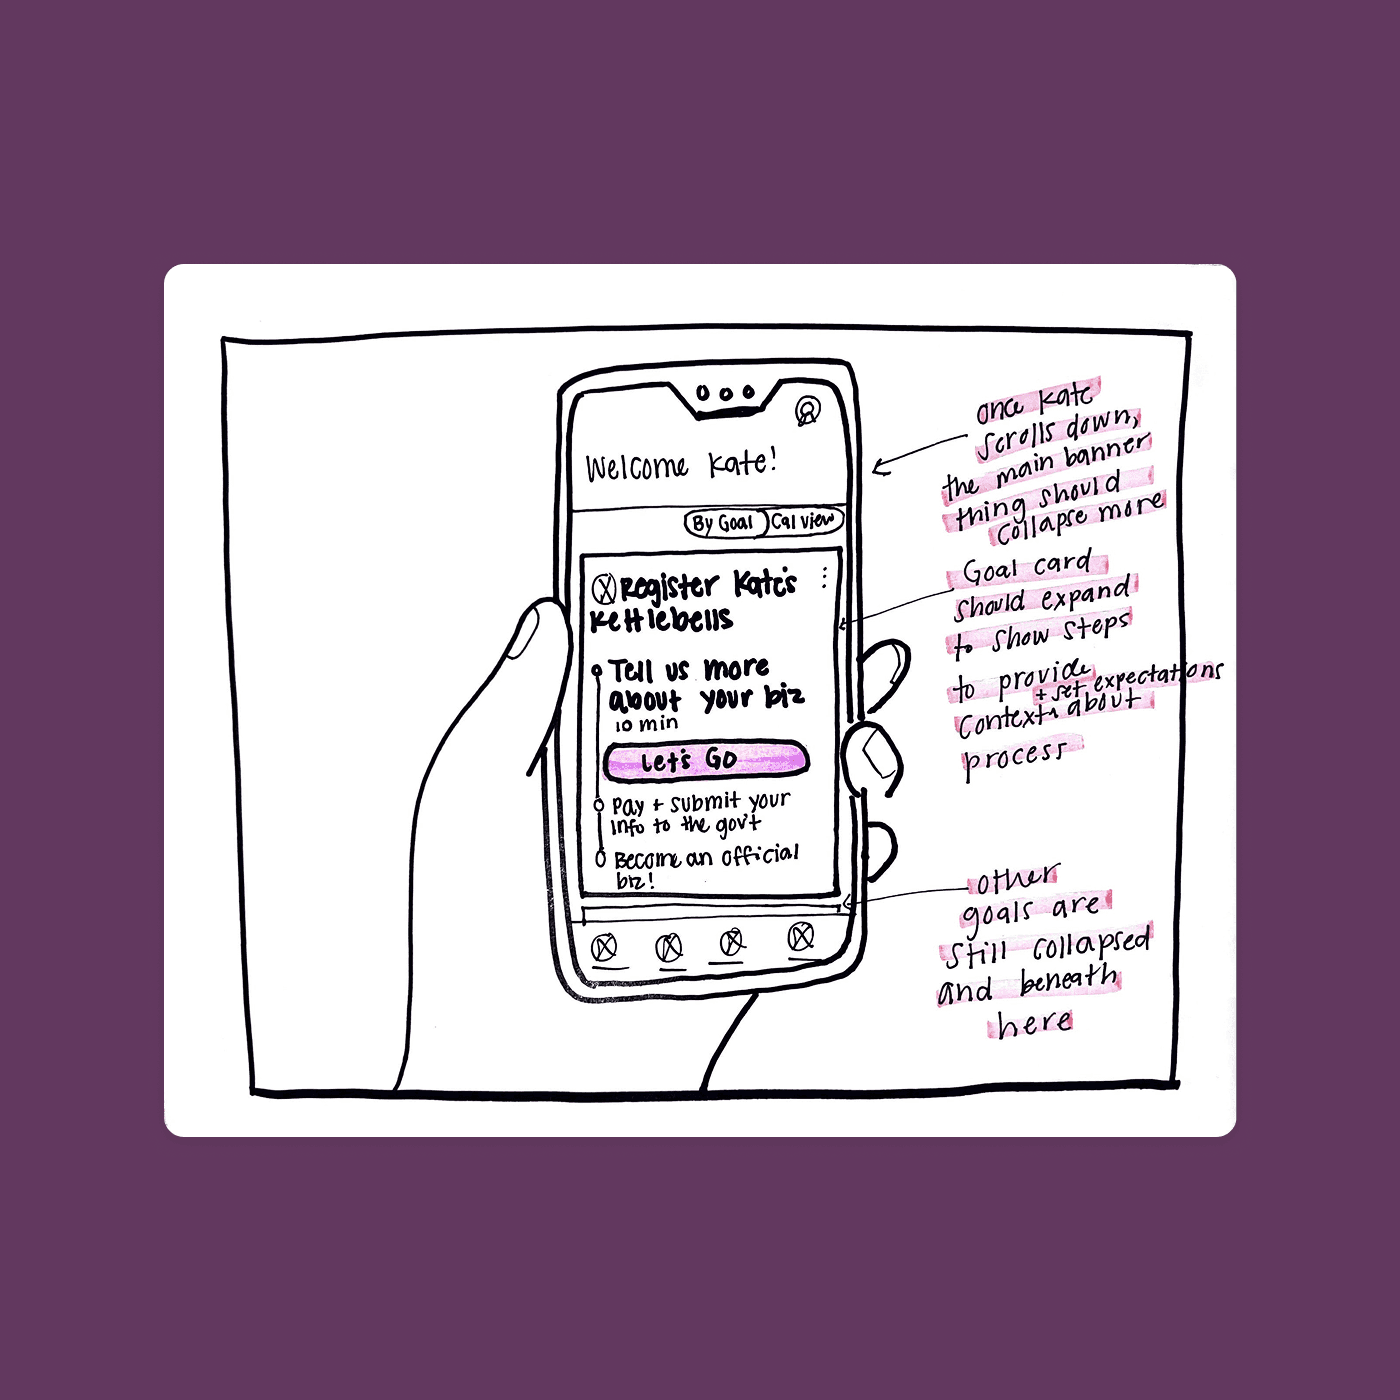 Welcome Kate!
By Goal
Cal view
Register Kate's
Kettlebells
Tell us more
about your biz
10 min
Let's Go
Pay + submit your
info to the gov't
Become an official
biz!
once Kate
scrolls down,
the main banner
thing should
collapse more
Goal card
should expand
to show steps
to provide
+ set expectations
context about
process
other
goals are
still collapsed
and beneath
here